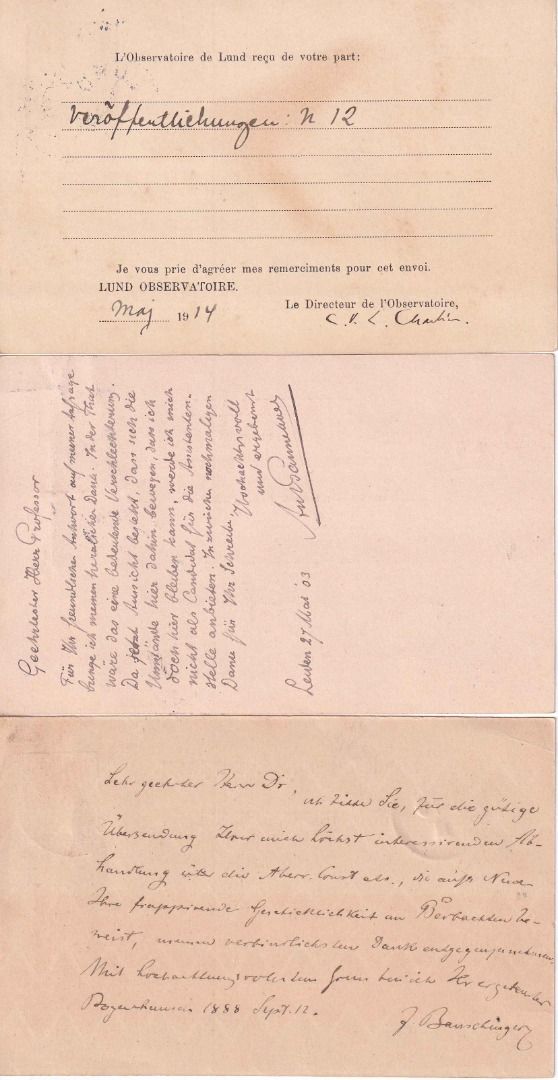 L'Observatoire de Lund reçu de votre part:
Veröffentlichungen: N 12
Je vous prie d'agréer mes remerciments pour cet envoi.
LUND OBSERVATOIRE.
Maj 1914
Le Directeur de l'Observatoire,
C. V. L. Charlier.
Geehrtester Herr Professor
Für Ihr freundliches Antwort auf meiner Anfrage
bringe ich meinen herzlichen Dank. In der That
wäre das eine bedeutende Verschlechterung.
Da jetzt Aussicht besteht, dass sich die
Umstände hier dahin bewegen, dass ich
doch hier bleiben kann, werde ich mich
nicht als Candidat für die Assistenten-
stelle anbieten. Inzwischen nochmaligen
Dank für Ihr Schreiben. Hochachtungsvoll
und ergebenst
Ant Pannekoek
Leiden 27 Mai 03
Sehr geehrter Herr Dr,
ich bitte Sie, für die gütige
Übersendung Ihrer mich höchst interessirenden Ab-
handlung über die Aberr. Const etc., die aufs Neue
Ihre frappirende Geschicklichkeit im Beobachten be-
weist, meinen verbindlichsten Dank entgegenzunehmen
Mit hochachtungsvollstem Gruss bin ich Ihr ergebenster
Bogenhausen 1888 Sept. 12.
J. Bauschinger